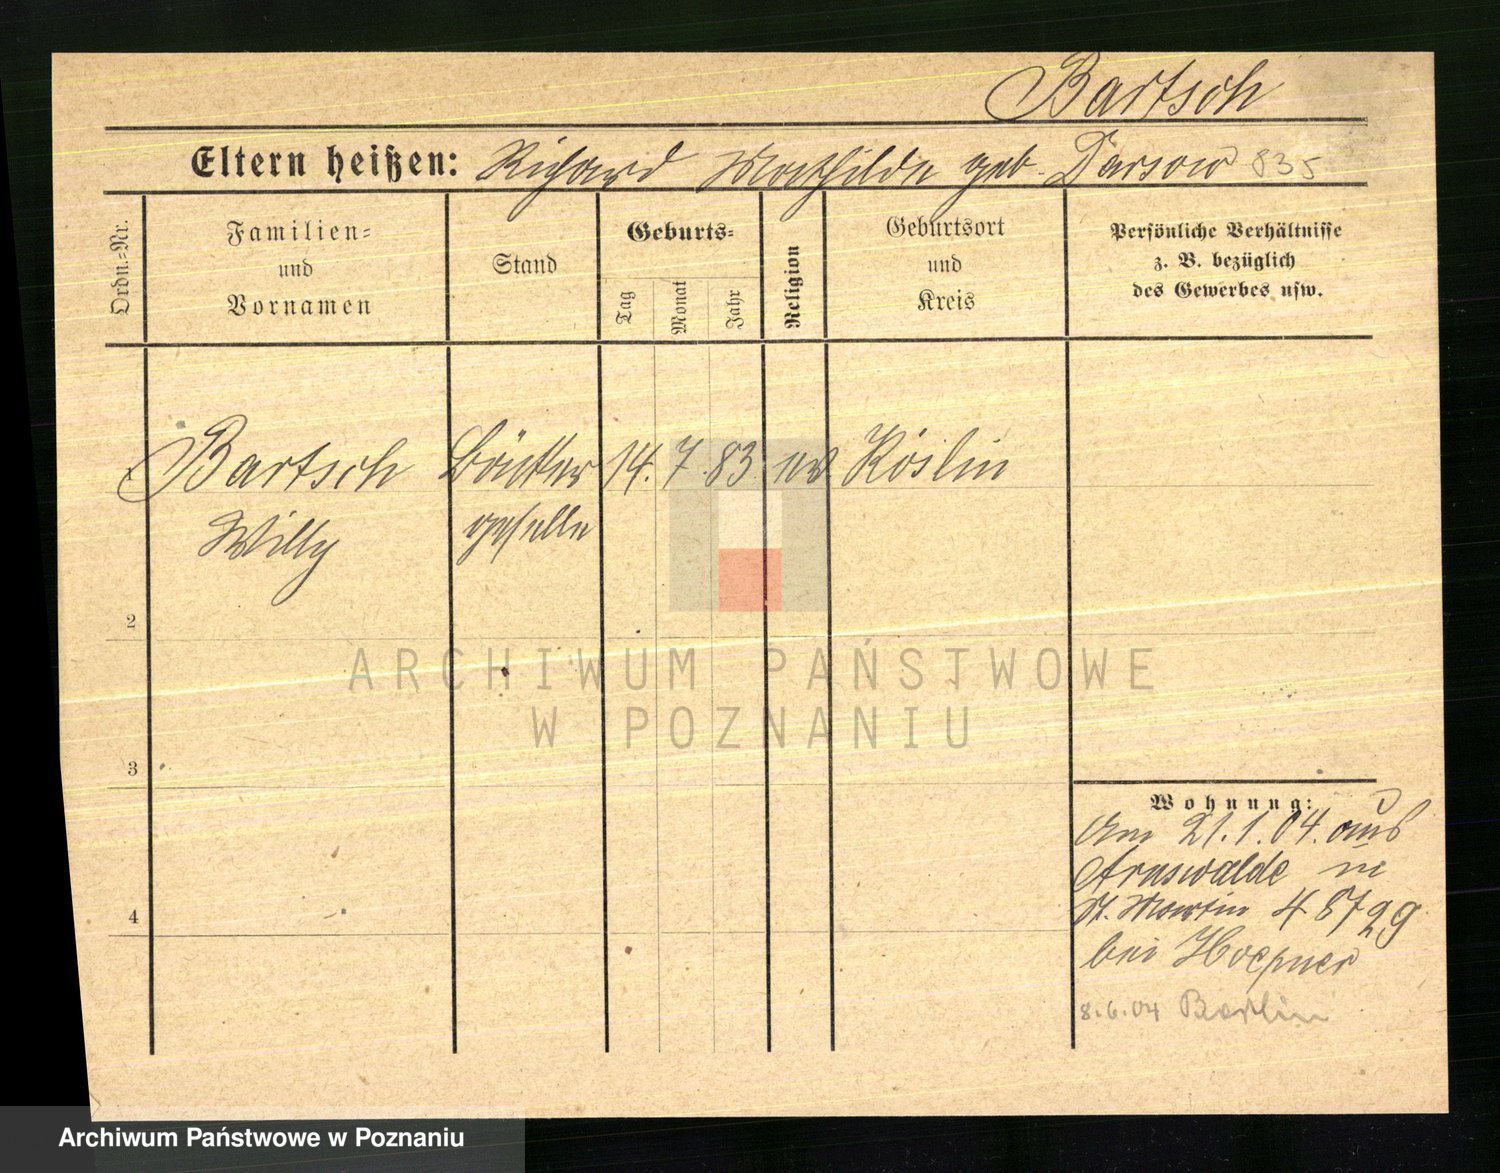 Bartsch
Eltern heißen: Richard Mathilde geb. Darsow 835
Ordn.=Nr.
Familien=
und
Vornamen
Stand
Geburts=
Tag
Monat
Jahr
Religion
Geburtsort
und
Kreis
Persönliche Verhältnisse
z. B. bezüglich
des Gewerbes usw.
Bartsch Bäcker 14. 7. 83 ev Köslin
Willy geselle
2
3
4
Wohnung:
Am 21.1.04. aus
Arnswalde in
St. Martin 48729
bei Hoepner
8.6.04 Berlin
ARCHIWUM PAŃSTWOWE
W POZNANIU
Archiwum Państwowe w Poznaniu